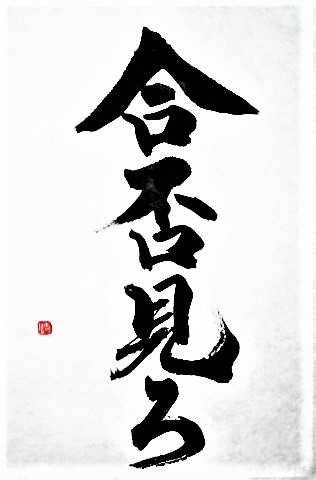 合否見ろ